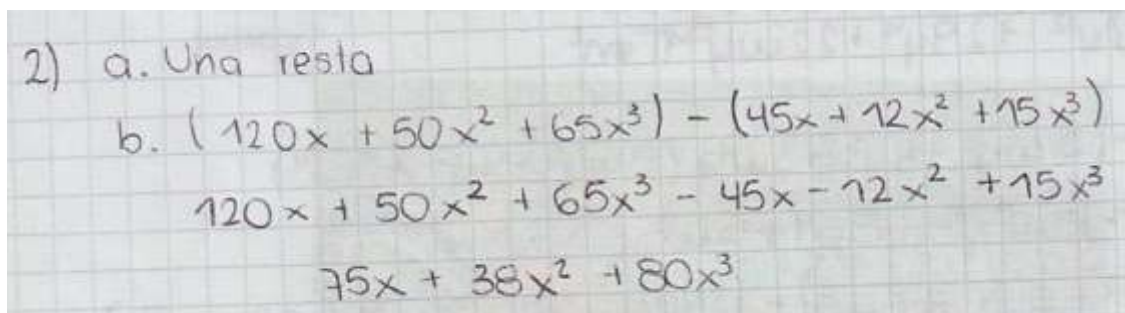 2) a. Una resta
b. (120x + 50x² + 65x³) - (45x + 12x² + 15x³)
120x + 50x² + 65x³ - 45x - 12x² + 15x³
75x + 38x² + 80x³